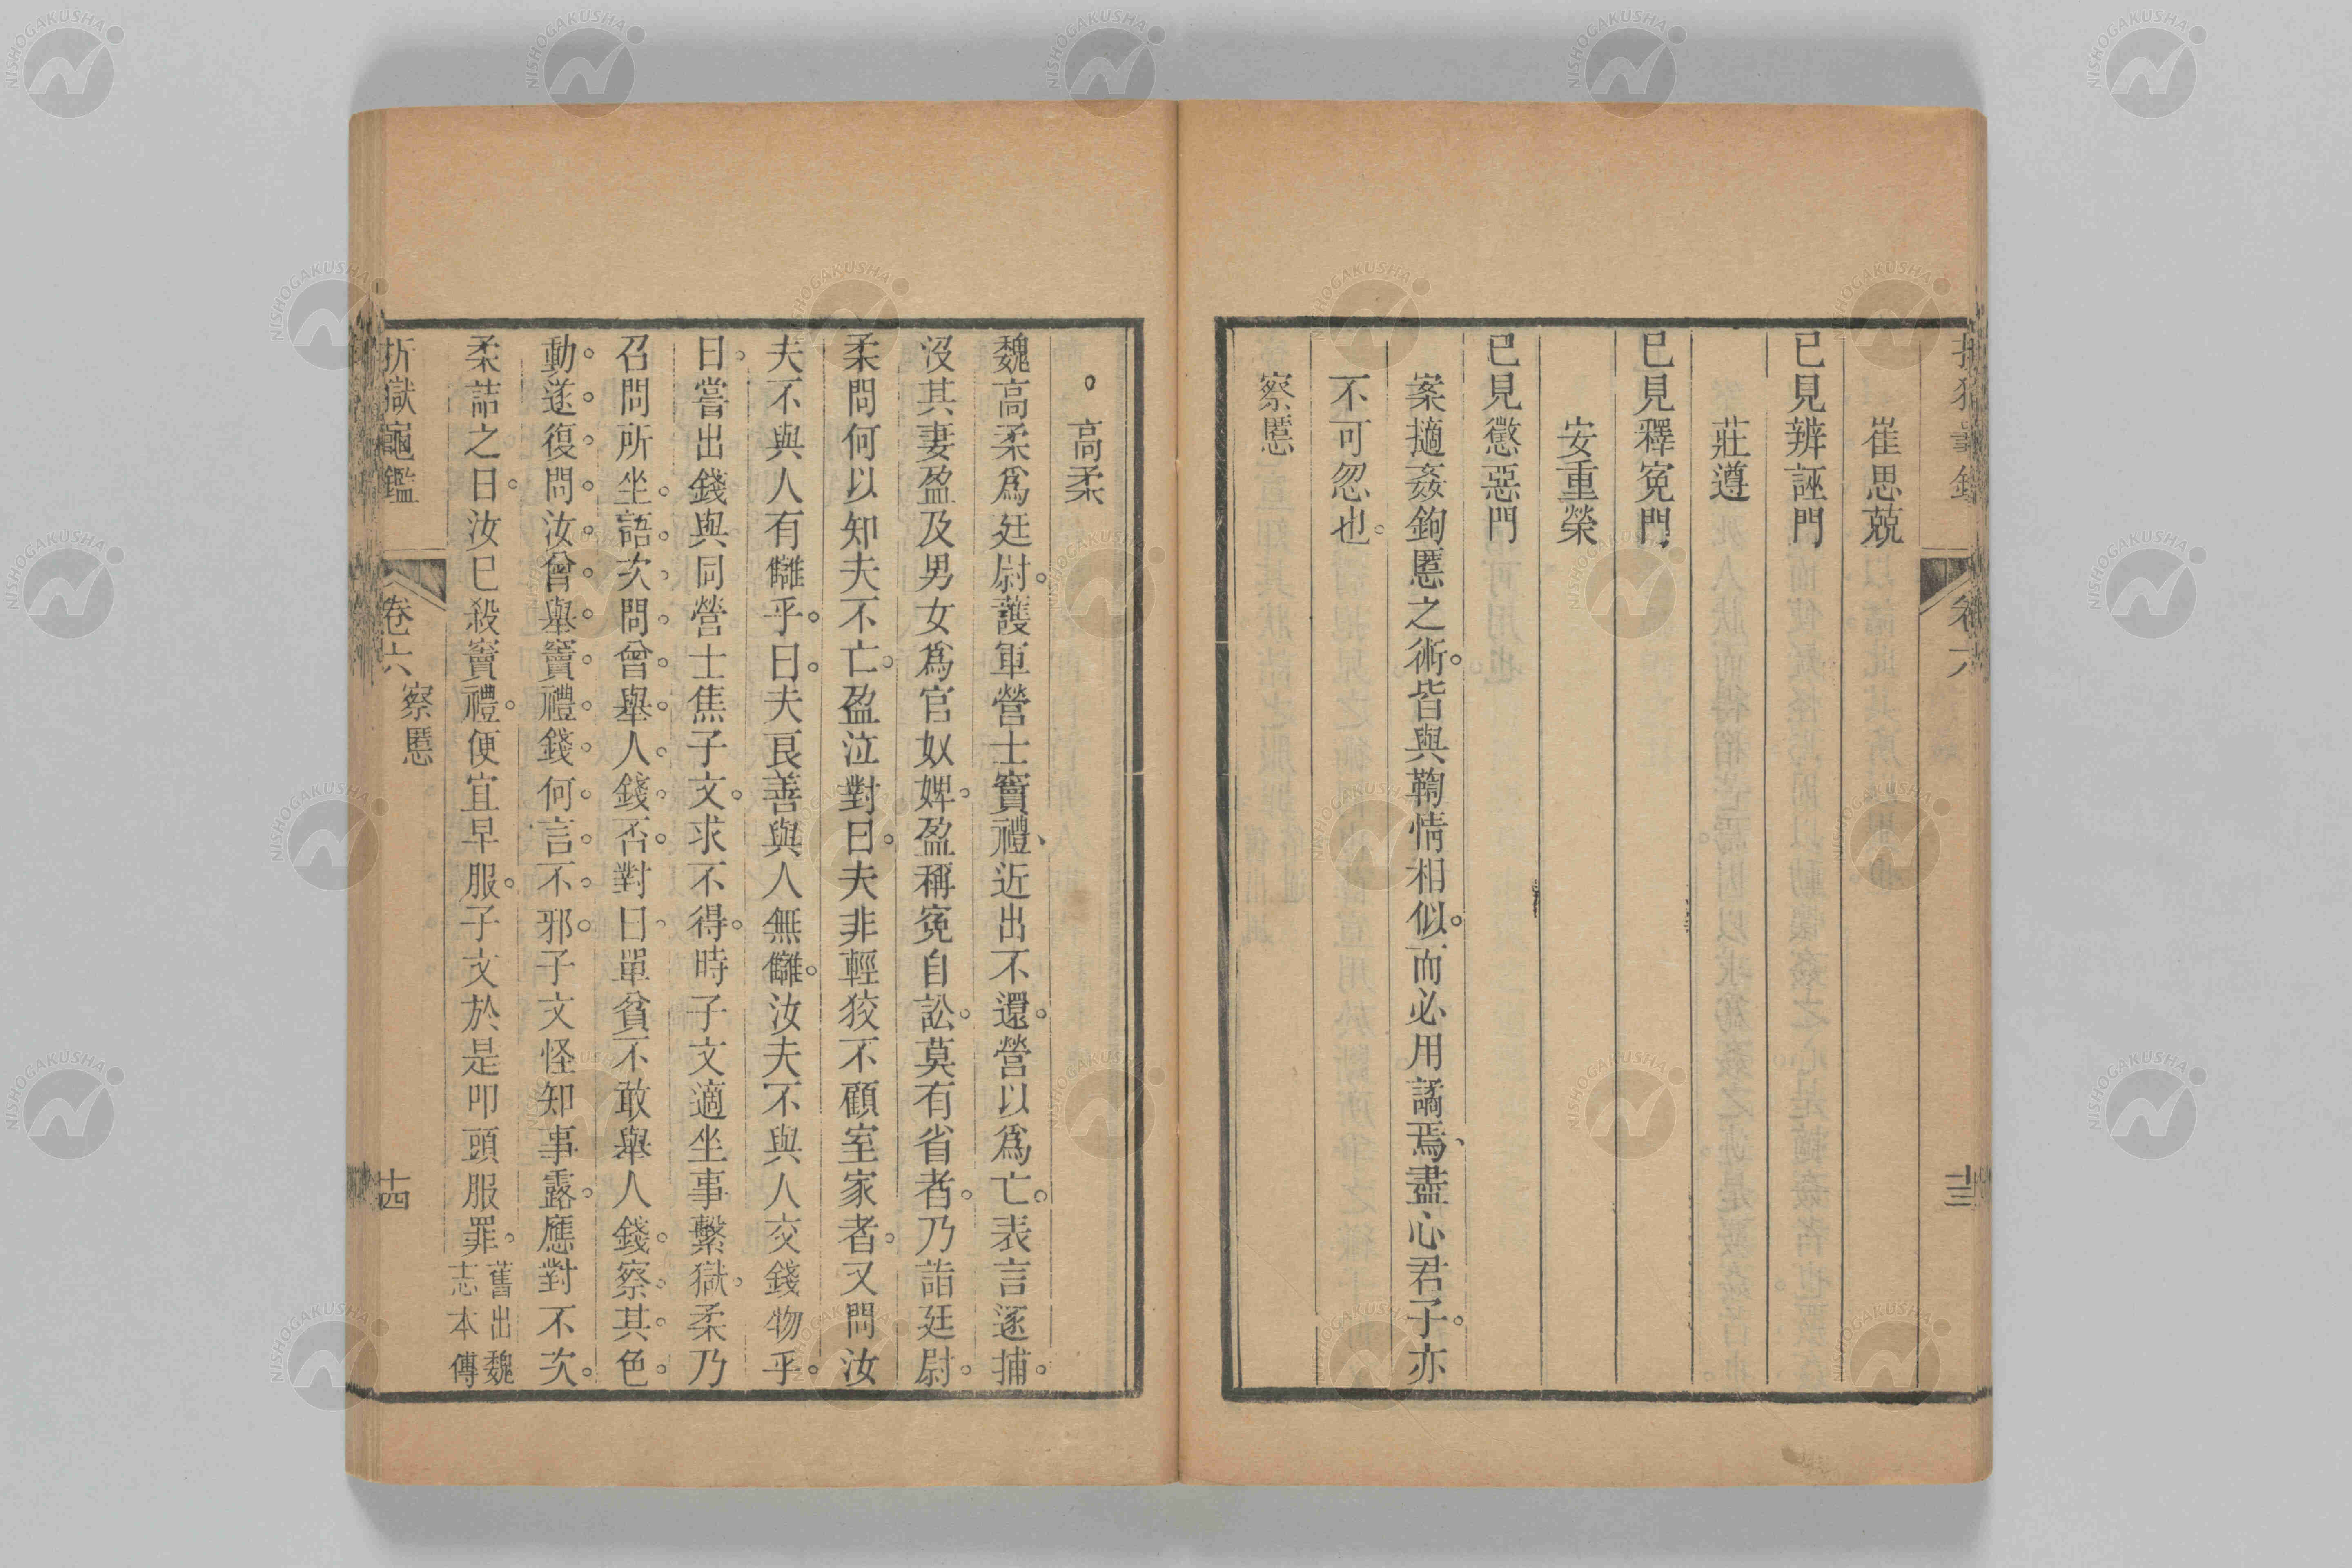 崔思兢
已見辨誣門
莊遵
已見釋寃門
安重榮
已見懲惡門
案擿姦鉤慝之術。皆與鞠情相似。而必用譎焉、盡心君子。亦
不可忽也。
察慝
卷六
十三
。高柔
魏高柔爲廷尉。護軍營士竇禮、近出不還。營以爲亡。表言逐捕。
沒其妻盈及男女爲官奴婢。盈稱寃自訟。莫有省者。乃詣廷尉。
柔問何以知夫不亡。盈泣對曰。夫非輕狡不顧室家者。又問汝
夫不與人有讎乎。曰。夫良善與人無讎。汝夫不與人交錢物乎。
曰。嘗出錢與同營士焦子文。求不得。時子文適坐事繫獄。柔乃
召問所坐。語次。問。曾。舉。人。錢。否。對曰。單貧不敢舉人錢。察。其。色。
動。遂。復。問。汝。曾。舉。竇。禮。錢。何。言。不。邪。子文怪知事露。應對不次。
柔詰之。曰。汝已殺竇禮。便宜早服。子文於是叩頭服罪。舊出魏
志本傳
折獄龜鑑
卷六
察慝
十四
NISHOGAKUSHA